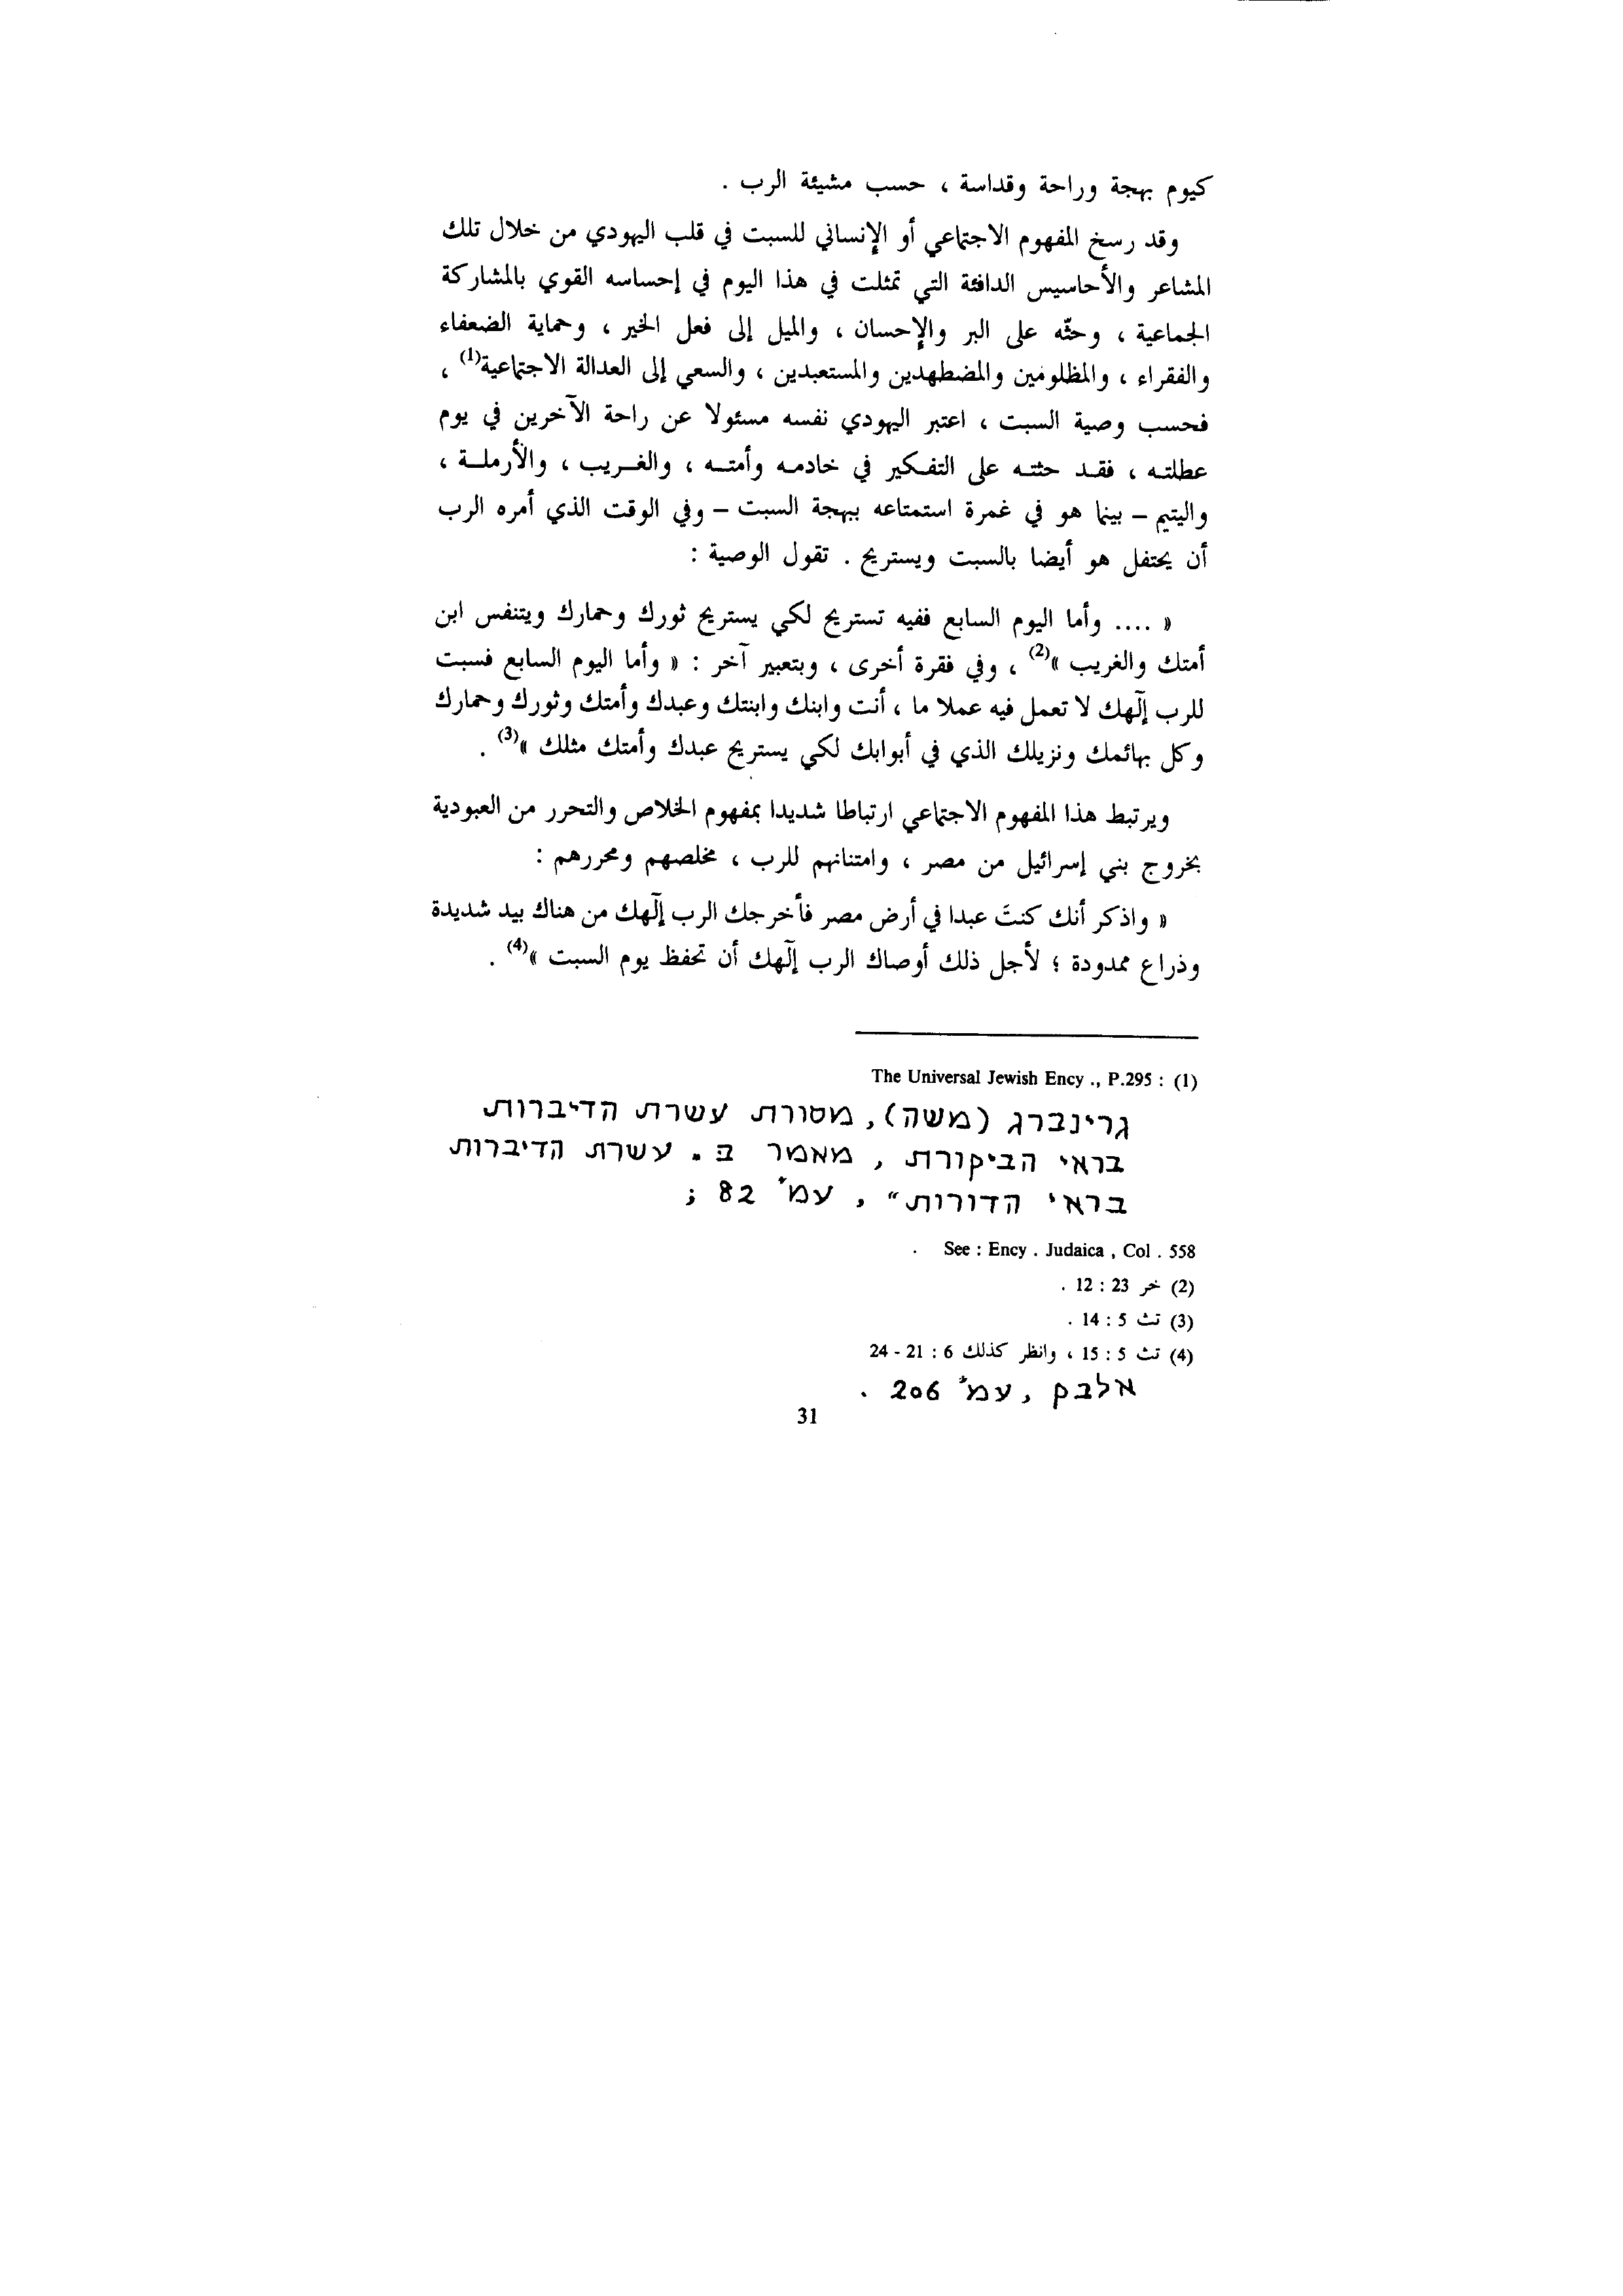 كيوم بهجة وراحة وقداسة ، حسب مشيئة الرب .
وقد رسخ المفهوم الاجتماعي أو الإنساني للسبت في قلب اليهودي من خلال تلك
المشاعر والأحاسيس الدافئة التي تمثلت في هذا اليوم في إحساسه القوي بالمشاركة
الجماعية ، وحثّه على البر والإحسان ، والميل إلى فعل الخير ، وحماية الضعفاء
والفقراء ، والمظلومين والمضطهدين والمستعبدين ، والسعي إلى العدالة الاجتماعية(1) ،
فحسب وصية السبت ، اعتبر اليهودي نفسه مسئولا عن راحة الآخرين في يوم
عطلتـه ، فقـد حثتـه على التفـكير في خادمـه وأمتـه ، والغـريب ، والأرملـة ،
واليتيم – بينما هو في غمرة استمتاعه ببهجة السبت – وفي الوقت الذي أمره الرب
أن يحتفل هو أيضا بالسبت ويستريح . تقول الوصية :
« .... وأما اليوم السابع ففيه تستريح لكي يستريح ثورك وحمارك ويتنفس ابن
أمتك والغريب »(2) ، وفي فقرة أخرى ، وبتعبير آخر : « وأما اليوم السابع فسبت
للرب إلٓهك لا تعمل فيه عملا ما ، أنت وابنك وابنتك وعبدك وأمتك وثورك وحمارك
وكل بهائمك ونزيلك الذي في أبوابك لكي يستريح عبدك وأمتك مثلك »(3) .
ويرتبط هذا المفهوم الاجتماعي ارتباطا شديدا بمفهوم الخلاص والتحرر من العبودية
بخروج بني إسرائيل من مصر ، وامتنانهم للرب ، مخلصهم ومحررهم :
« واذكر أنك كنتَ عبدا في أرض مصر فأخرجك الرب إلٓهك من هناك بيد شديدة
وذراع ممدودة ؛ لأجل ذلك أوصاك الرب إلٓهك أن تحفظ يوم السبت »(4) .
The Universal Jewish Ency ., P.295 : (1)
גרינברג (משה), מסורת עשרת הדיברות
בראי הביקורת , מאמר ב . עשרת הדיברות
בראי הדורות" , עמ' 82 ;
See : Ency . Judaica , Col . 558 .
(2) خر 23 : 12 .
(3) تث 5 : 14 .
(4) تث 5 : 15 ، وانظر كذلك 6 : 21 - 24
אלבק , עמ' 206 .
31